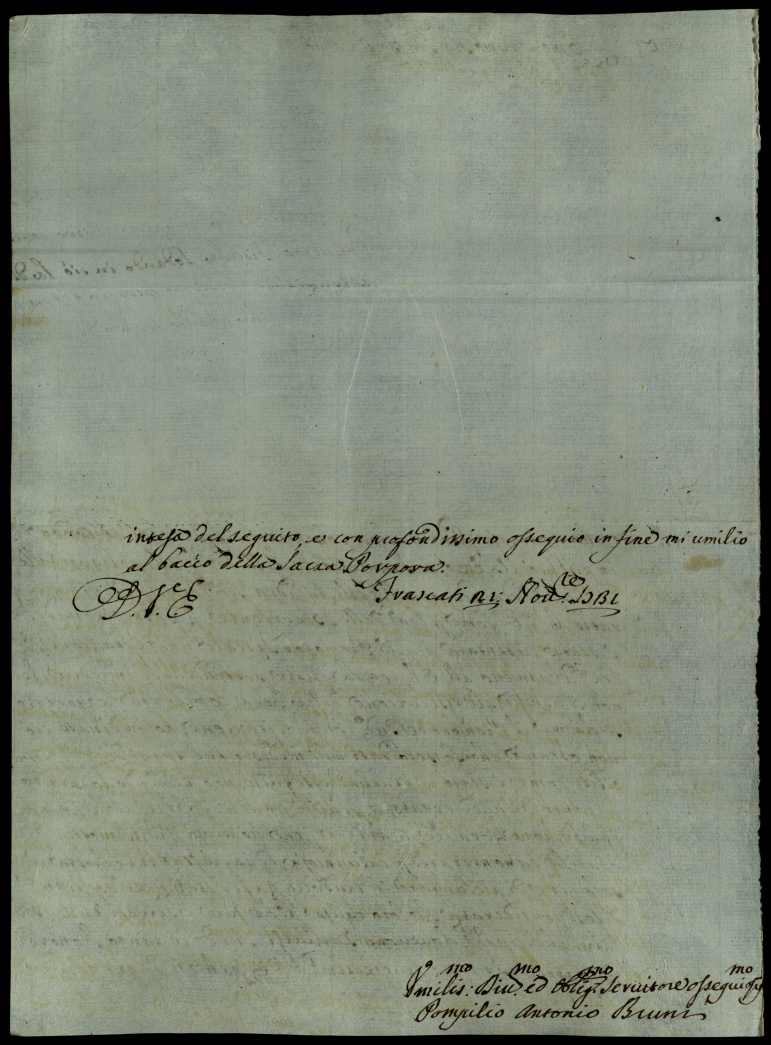 intesa del seguito, e con profondissimo ossequio in fine mi umilio
al bacio della Sacra Porpora.
D. V. E. Frascati 21: Nov.re 1781
Umilis:mo Div:mo ed Oblig:mo Servitore ossequios:mo
Pompilio Antonio Bruni